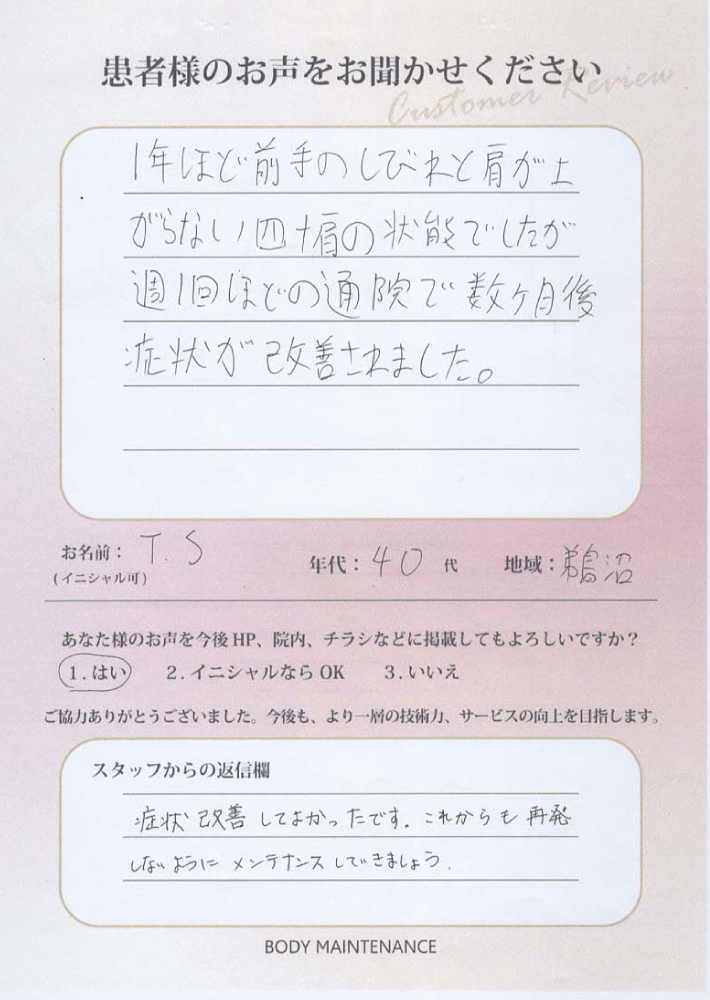 患者様のお声をお聞かせください
Customer Review
1年ほど前手のしびれと肩が上
がらない四十肩の状態でしたが
週1回ほどの通院で数ヶ月後
症状が改善されました。
お名前： T.S
(イニシャル可)
年代： 40 代
地域： 鵜沼
あなた様のお声を今後HP、院内、チラシなどに掲載してもよろしいですか？
1. はい 2. イニシャルならOK 3. いいえ
ご協力ありがとうございました。今後も、より一層の技術力、サービスの向上を目指します。
スタッフからの返信欄
症状改善してよかったです. これからも再発
しないように メンテナンスしていきましょう.
BODY MAINTENANCE